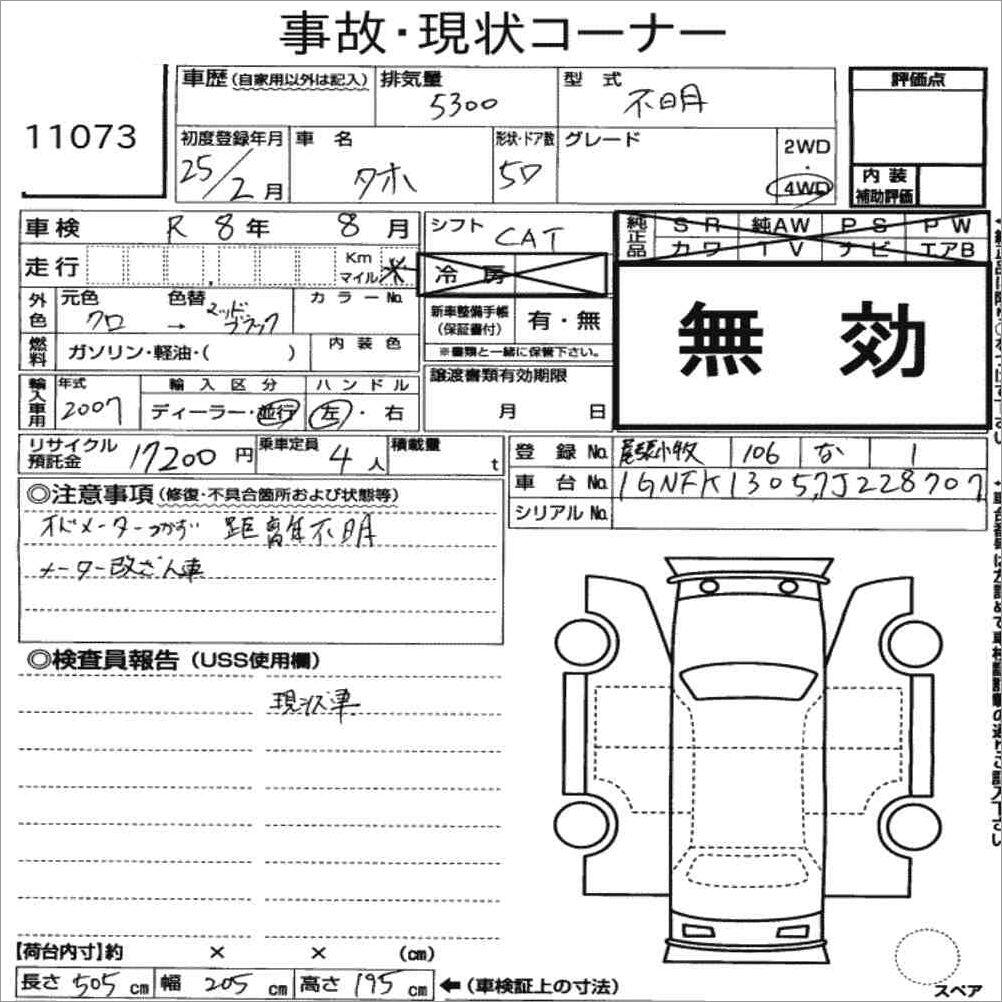 事故・現状コーナー
11073
車歴(自家用以外は記入)
排気量 5300
型式 不明
評価点
初度登録年月 25/2月
車名 タホ
形状・ドア数 5D
グレード
2WD・4WD
内装補助評価
車検 R 8年 8月
シフト CAT
純正品 SR 純AW PS PW
カワ TV ナビ エアB
走行 Km マイル ※
冷房
外色 元色 クロ → 色替 マッドブラック カラーNo.
新車整備手帳(保証書付) 有・無
※書類と一緒に保管下さい。
無効
燃料 ガソリン・軽油・( ) 内装色
輸入車用 年式 2007 輸入区分 ディーラー・並行 ハンドル 左・右
譲渡書類有効期限 月 日
リサイクル預託金 17200円 乗車定員 4人 積載量 t
登録No. 尾張小牧 106 な 1
車台No. 1GNFK13057J228707
シリアルNo.
◎注意事項(修復・不具合箇所および状態等)
オドメーターつかず 距離不明
メーター改ざん車
◎検査員報告(USS使用欄)
現状車
【荷台内寸】約 × × (cm)
長さ 505 cm 幅 205 cm 高さ 195 cm ←(車検証上の寸法)
スペア